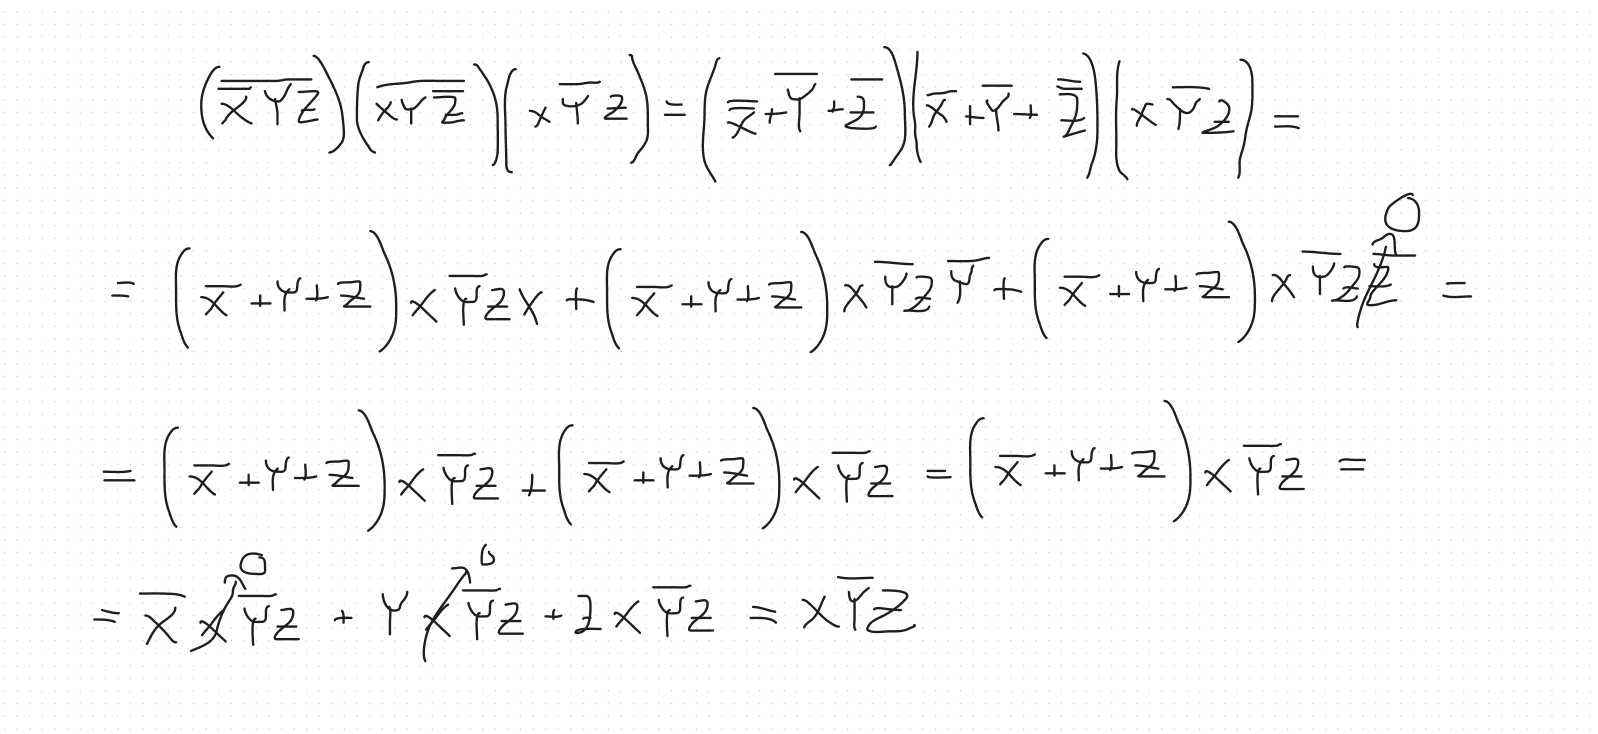 $(\overline{\overline{X}YZ})(\overline{XY\overline{Z}})(X\overline{Y}Z) = (\overline{\overline{X}}+\overline{Y}+\overline{Z})(\overline{X}+\overline{Y}+\overline{\overline{Z}})(X\overline{Y}Z) =$
$= (\overline{X}+Y+Z)X\overline{Y}ZX + (\overline{X}+Y+Z)X\overline{Y}Z\overline{Y} + (\overline{X}+Y+Z)X\overline{Y}Z\cancelto{0}{\overline{Z}} =$
$= (\overline{X}+Y+Z)X\overline{Y}Z + (\overline{X}+Y+Z)X\overline{Y}Z = (\overline{X}+Y+Z)X\overline{Y}Z =$
$= \overline{X}\cancelto{0}{X}\overline{Y}Z + Y\cancelto{0}{X}\overline{Y}Z + ZX\overline{Y}Z = X\overline{Y}Z$